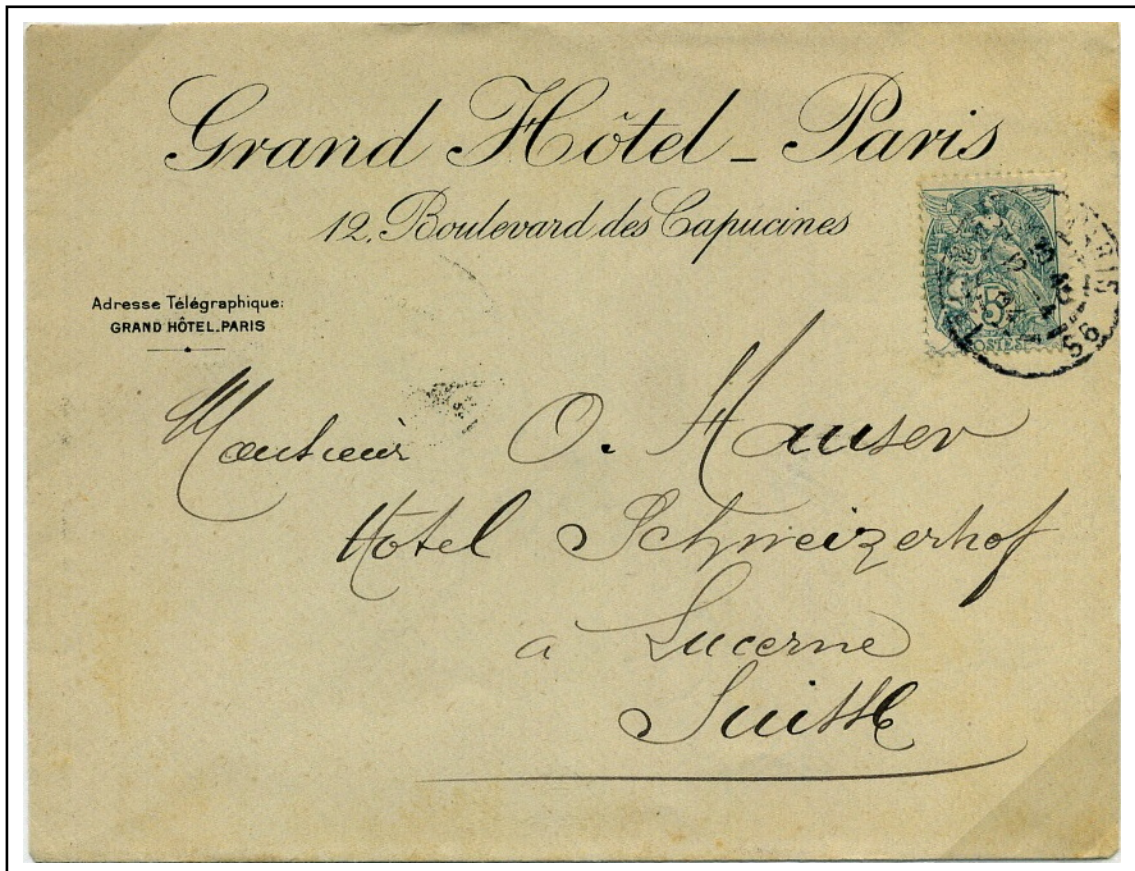 Grand Hôtel - Paris
12, Boulevard des Capucines
Adresse Télégraphique:
GRAND HÔTEL.PARIS
PARIS
56
5
POSTES
Monsieur O. Hauser
Hotel Schweizerhof
à Lucerne
Suisse